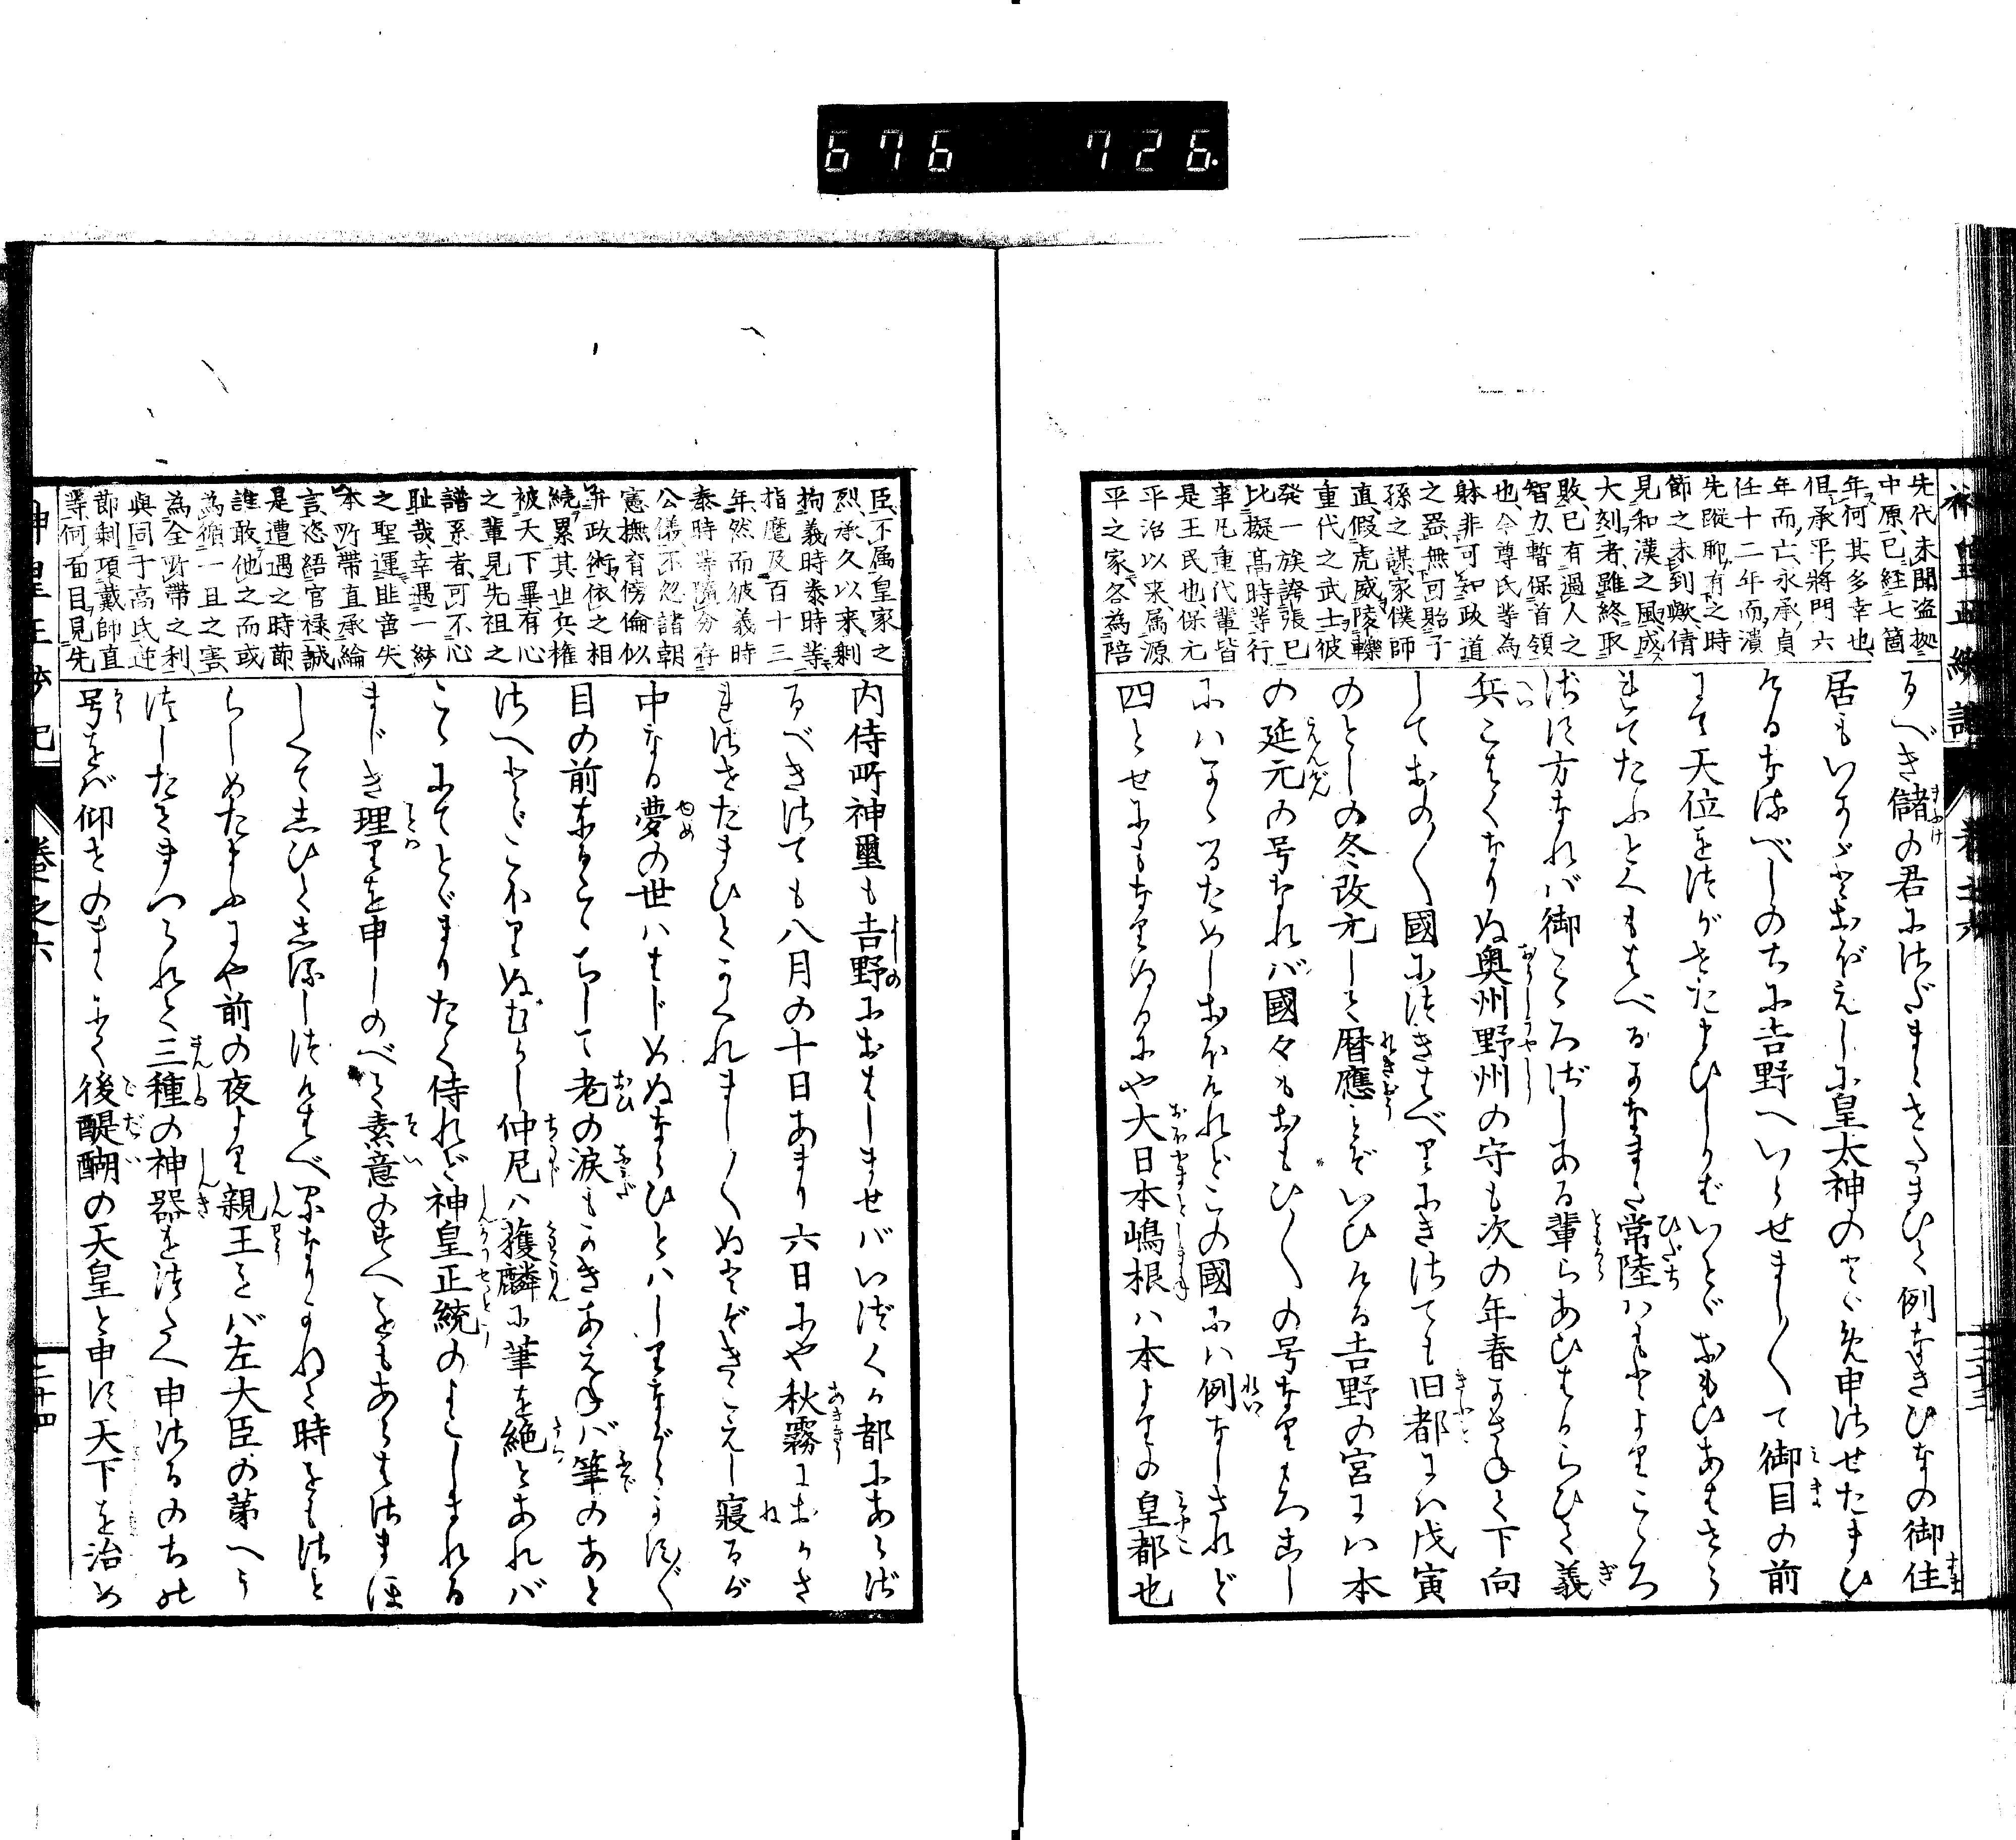 676 726.
神皇正統記 巻之六
先代未聞盗拠
中原已経七箇
年何其多幸也
但承平將門六
年而亡永承貞
任十二年而潰
先蹤聊有之時
節之未到歟倩
見和漢之風成
大刻者雖終取
敗已有過人之
智力暫保首領
也今尊氏等為
躰非可知政道
之器無可貽子
孫之謀家僕師
直假虎威陵轢
重代之武士彼
發一族誇張已
比擬高時等行
事凡重代輩皆
是王民也保元
平治以来属源
平之家各為陪
るべき儲の君にさだまらせたまひて例なきひなの御住
居もいかゞとおぼえしに皇太神のとゞめ申させたまひ
けるなるべしのちに吉野へいらせまし〱て御目の前
にて天位をつがせたまひしかばいとゞおもひあはせら
れてたふとくもはべるかなまた常陸ハもとよりこゝろ
ざす方なれバ御こゝろざしある輩らあひはからひて義
兵こはくなりぬ奥州野州の守も次の年春かさねて下向
しておの〱國につきはべりにきさても旧都にハ戊寅
のとしの冬改元して暦應とぞいひける吉野の宮にハ本
の延元の号なれバ國々もおもひ〱の号なりもろこし
にハかゝるためしおほけれどこの國にハ例なしされど
四とせにもなりぬるにや大日本嶋根ハ本よりの皇都也
臣不属皇家之
烈承久以来剰
拘義時泰時等
指麾及百十三
年然而彼義時
泰時等随分存
公儀不忽諸朝
憲撫育傍倫似
弁政術依之相
続累其世兵権
被天下畢有心
之輩見先祖之
譜系者可不心
耻哉幸遇一紗
之聖運匪啻失
本所帯直承綸
言恣紆官禄誠
是遭遇之時節
誰敢他之而或
為循一旦之害
為全所帯之利
與同于高氏逆
節剰項戴師直
等何面目見先
内侍所神璽も吉野におはしませバいづくか都にあらざ
るべきさても八月の十日あまり六日にや秋霧におかさ
れさせたまひてかくれまし〱ぬとぞきこえし寝るが
中なる夢の世ハはじめぬならひとハしりながらかず〱
目の前なるこゝちして老の涙もかきあえねバ筆のあと
さへとゞこほりぬむかし仲尼ハ獲麟に筆を絶とあれバ
こゝにてとゞまりたく侍れど神皇正統のよこしまなる
まじき理りを申しのべて素意のすへをもあらはさまほ
しくて志ひて志るしつけはべるなりかねて時をもさと
らしめたまふにや前の夜より親王をバ左大臣の第へう
つしたてまつられて三種の神器をつたへ申さるのちの
号をバ仰せのまゝにて後醍醐の天皇と申す天下を治め
神皇正統記 巻之六 二十四